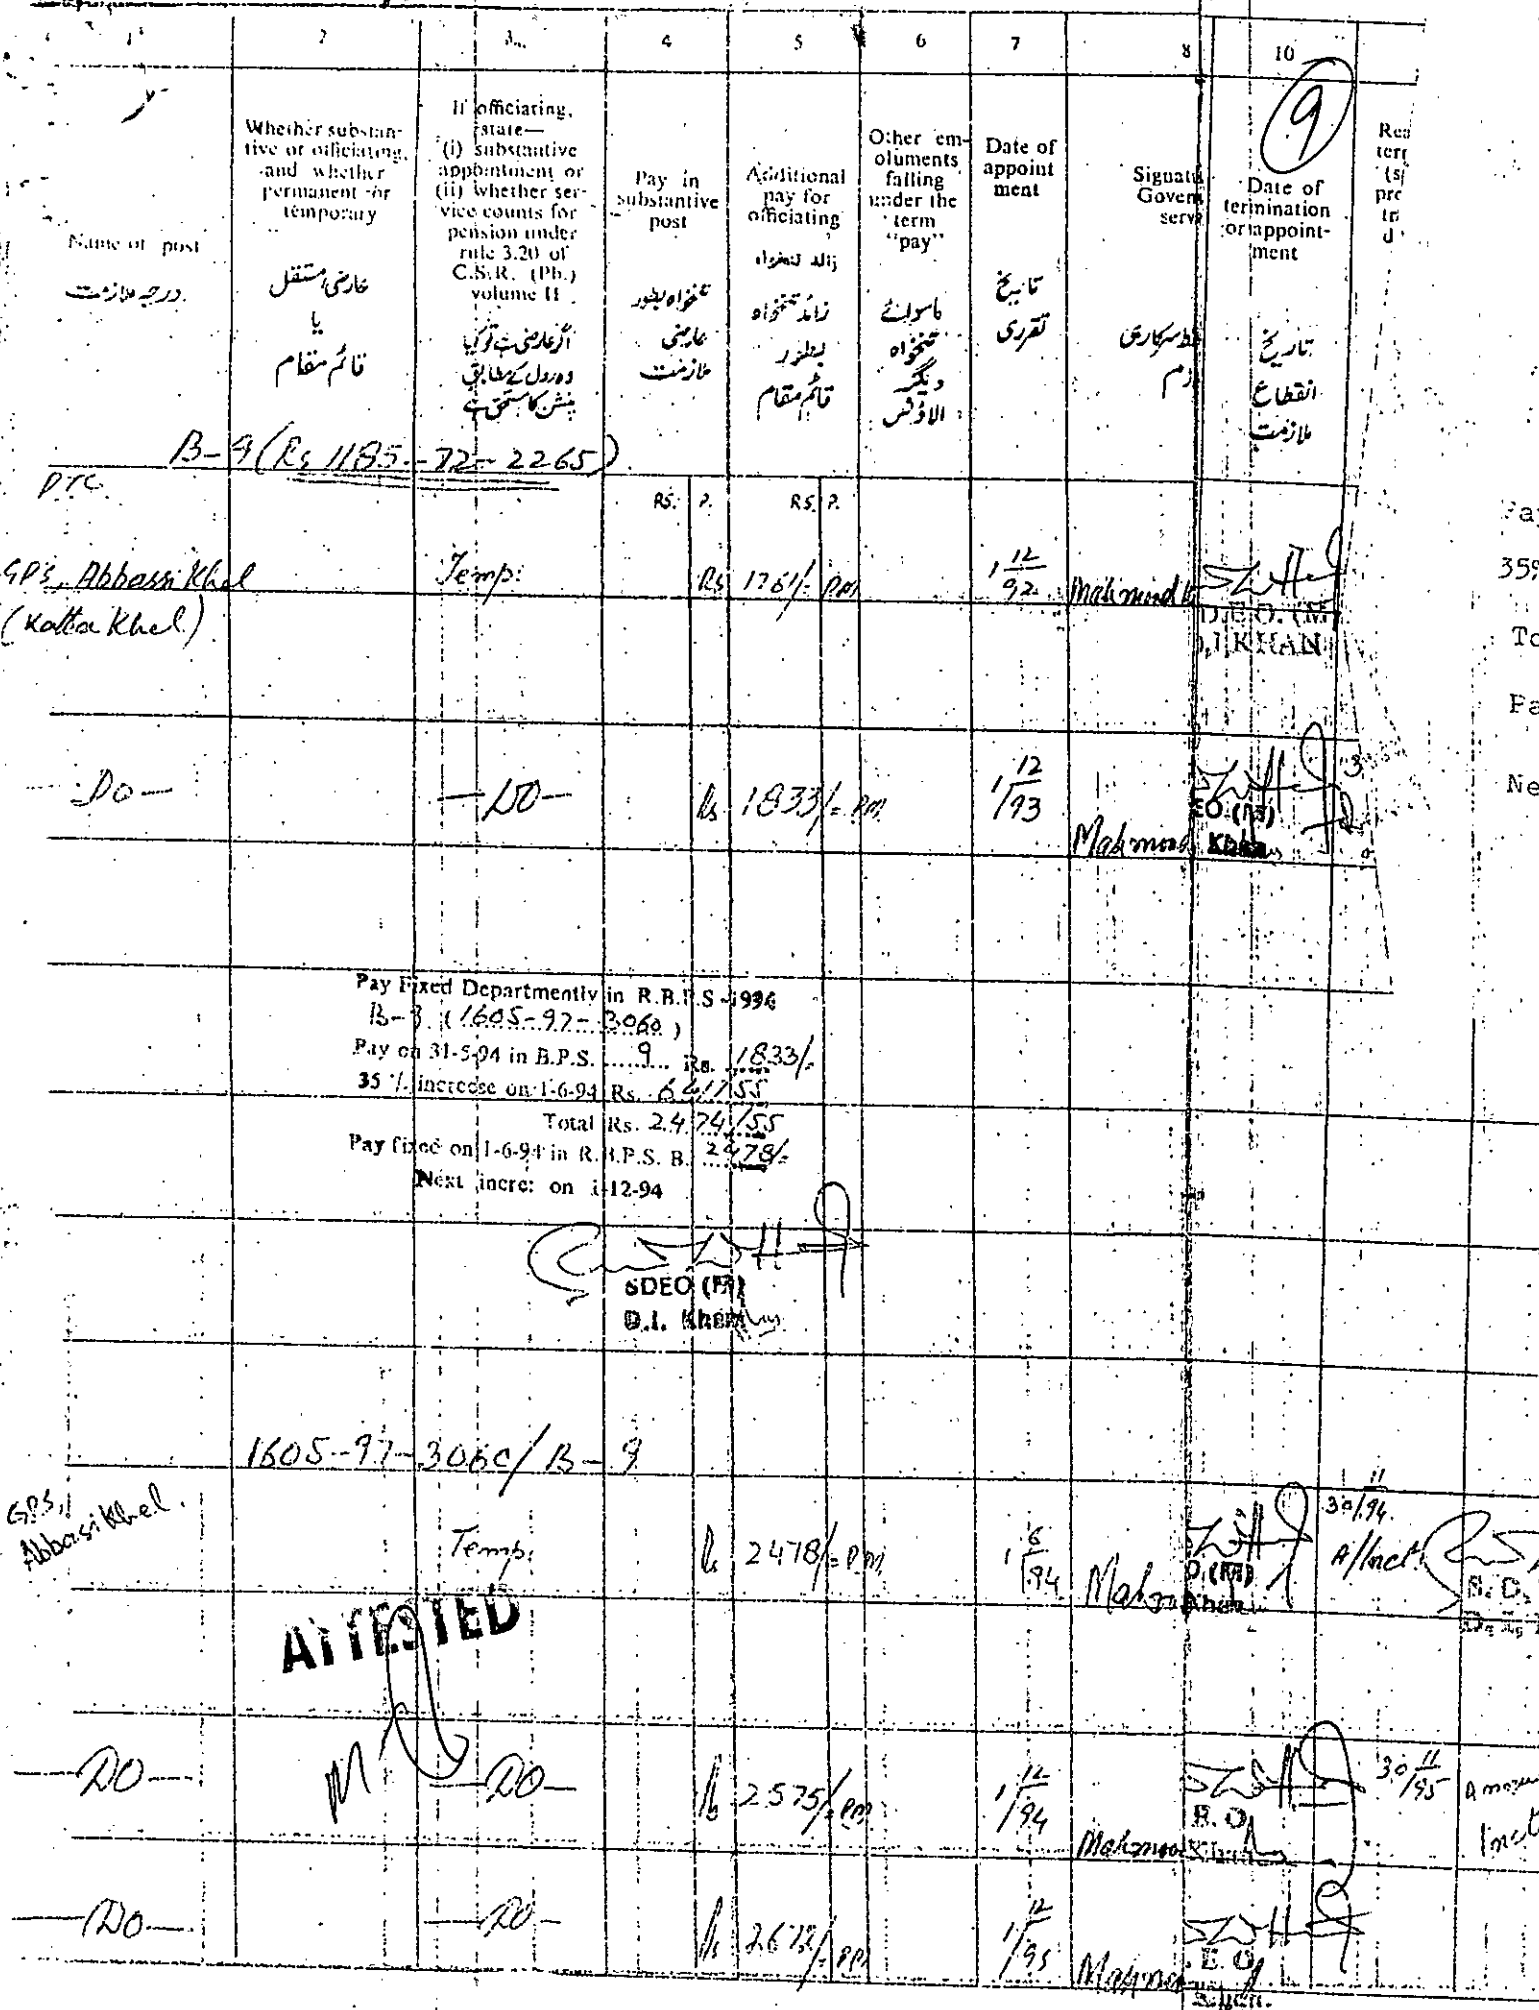 1 2 3 4 5 6 7 8 10
9
Name of post
درجہ ملازمت
Whether substan-
tive or officiating,
and whether
permanent or
temporary
عارضی مستقل
یا
قائم مقام
If officiating,
state—
(i) substantive
appointment or
(ii) whether ser-
vice counts for
pension under
rule 3.20 of
C.S.R. (Pb.)
volume II
اگر عارضی ہے تو کیا
وہ رول کے مطابق
پنشن کا مستحق ہے
Pay in
substantive
post
تنخواہ بطور
عارضی
ملازمت
Additional
pay for
officiating
زائد تنخواہ
زائد تنخواہ
بطور
قائم مقام
Other em-
oluments
falling
under the
term
"pay"
ماسوائے
تنخواہ
دیگر
الاؤنس
Date of
appoint
ment
تاریخ
تقرری
Signatu
Govern
serv
سرکاری
زم
Date of
termination
or appoint-
ment
تاریخ
انقطاع
ملازمت
Rea
tern
(s
pro
tr
d
B-9 (Rs 1185-72-2265)
PTC
Rs. P. Rs. P.
GPS, Abbassi Khel Temp: Rs 1761/- PM 1 12/92 Mahmood
(Katta Khel)
D.E.O. (M)
D.I. KHAN
35%
To
Pa
Ne
-Do- -Do- Rs 1833/- PM 1 12/93 Mahmood
EO (M)
Khan
Pay Fixed Departmently in R.B.P.S-1994
B-9 (1605-97-3060)
Pay on 31-5-94 in B.P.S. 9 Rs. 1833/-
35 % increase on 1-6-94 Rs. 641/55
Total Rs. 2474/55
Pay fixed on 1-6-94 in R.B.P.S. B. 2478/-
Next incre: on 1-12-94
SDEO (M)
D.I. Khan
1605-97-3060/B-9
GPS,
Abbasi Khel. Temp: Rs 2478/- PM 1 6/94 Mahmood 30 11/94 A/Inct
ATTESTED
-Do- -Do- Rs 2575/- PM 1 12/94 Mahmood 30 11/95
Inct
-Do- -Do- Rs 2672/- PM 1 12/95
E.O